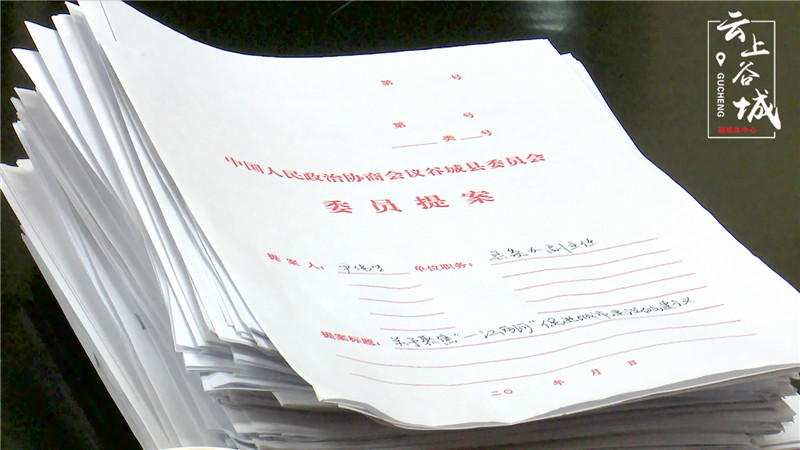 第 号
第 号
类 号
中国人民政治协商会议谷城县委员会
委员提案
提案人： 单位职务：
提案标题：关于聚焦“一江两河”促进城市建设的建议
二〇 年 月 日
云上谷城
GUCHENG
融媒体中心